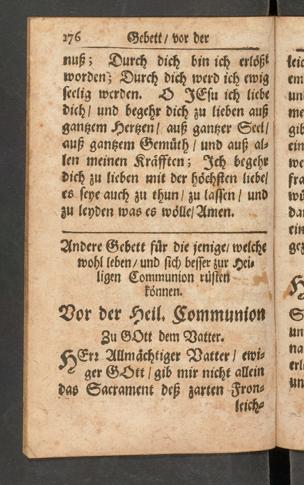 276 Gebett / vor der
nuß; Durch dich bin ich erlößt
worden; Durch dich werd ich ewig
seelig werden. O JEsu ich liebe
dich / und begehr dich zu lieben auß
gantzem Hertzen / auß gantzer Seel /
auß gantzem Gemüth / und auß al-
len meinen Kräfften; Ich begehr
dich zu lieben mit der höchsten liebe /
es seye auch zu thun / zu lassen / und
zu leyden was es wölle / Amen.
Andere Gebett für die jenige / welche
wohl leben / und sich besser zur Hei-
ligen Communion rüsten
können.
Vor der Heil. Communion
Zu GOtt dem Vatter.
HErr Allmächtiger Vatter / ewi-
ger GOtt / gib mir nicht allein
das Sacrament deß zarten Fron-
leich-